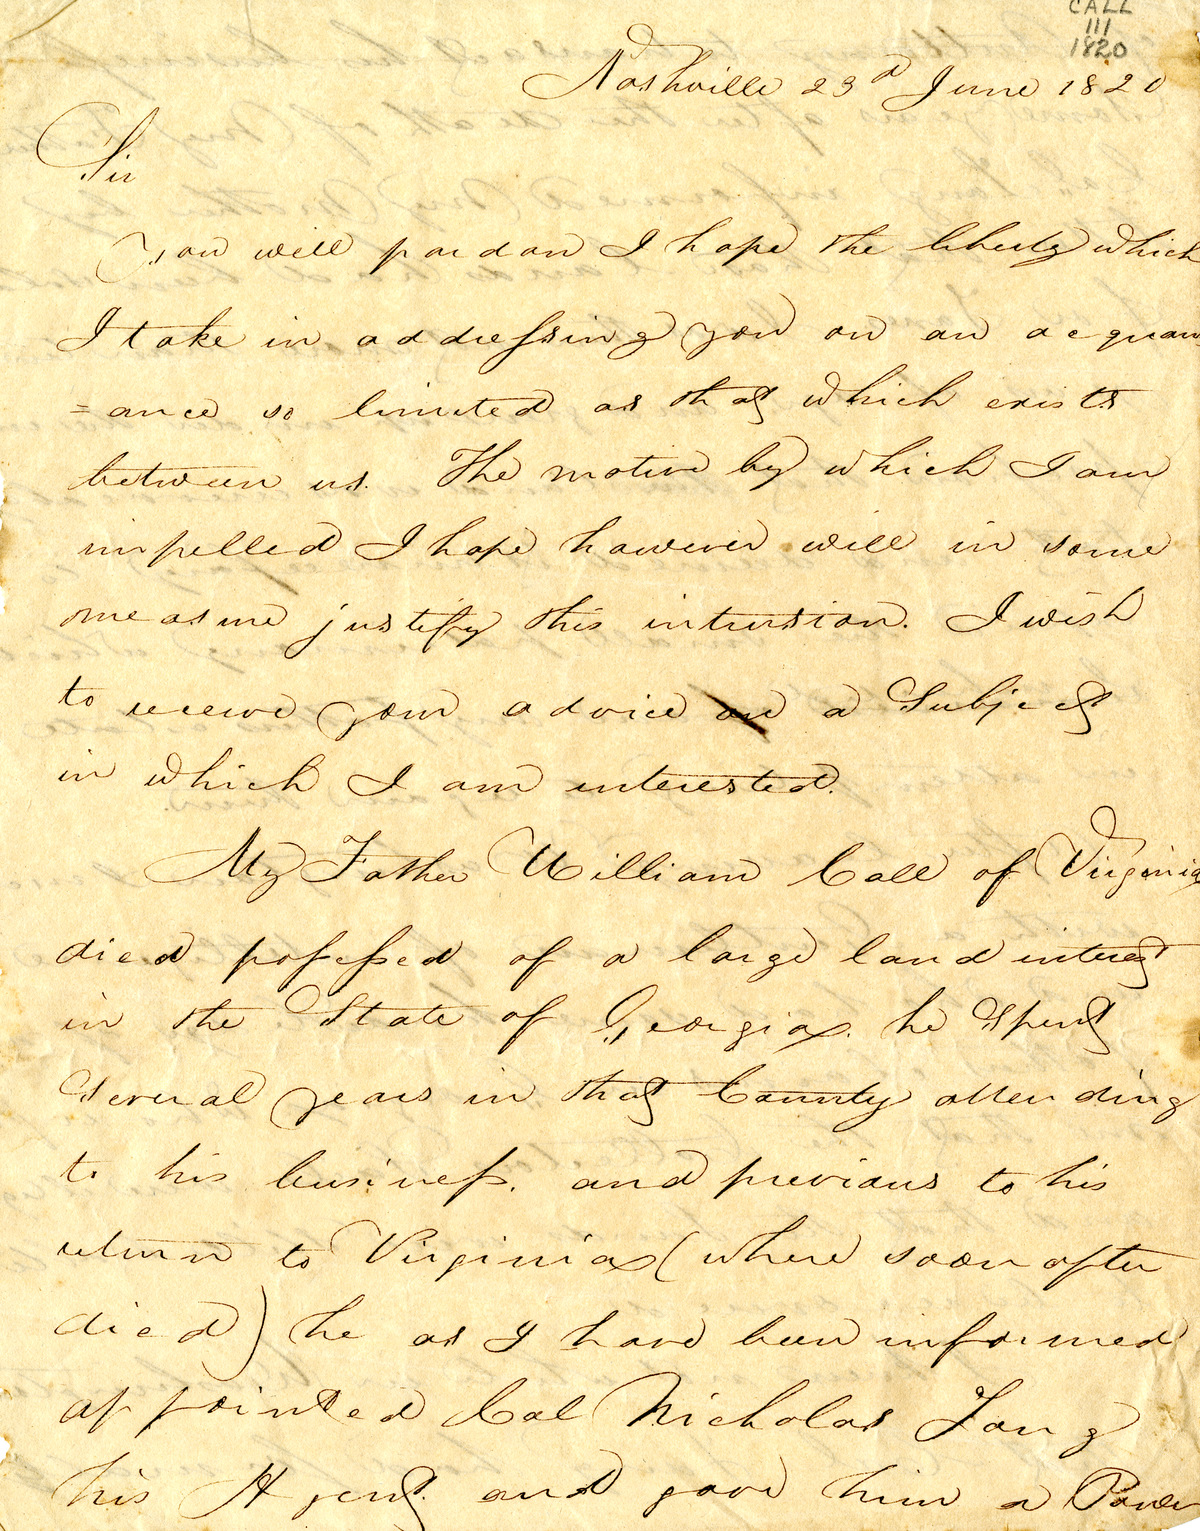 CALL
111
1820
Nashville 23d June 1820
Sir
You will pardon I hope the liberty which
I take in addressing you on an acquain
=ance so limited as that which exists
between us. The motive by which I am
impelled I hope however will in some
measure justify this intrusion. I wish
to receive your advice on a Subject
in which I am interested.
My Father William Call of Virginia
died possessed of a large land interest
in the State of Georgia. he Spent
Several years in that County attending
to his business. and previous to his
return to Virginia (where soon after
died) he as I have been informed
appointed Col Nicholas Long
his Agent. and gave him a Power